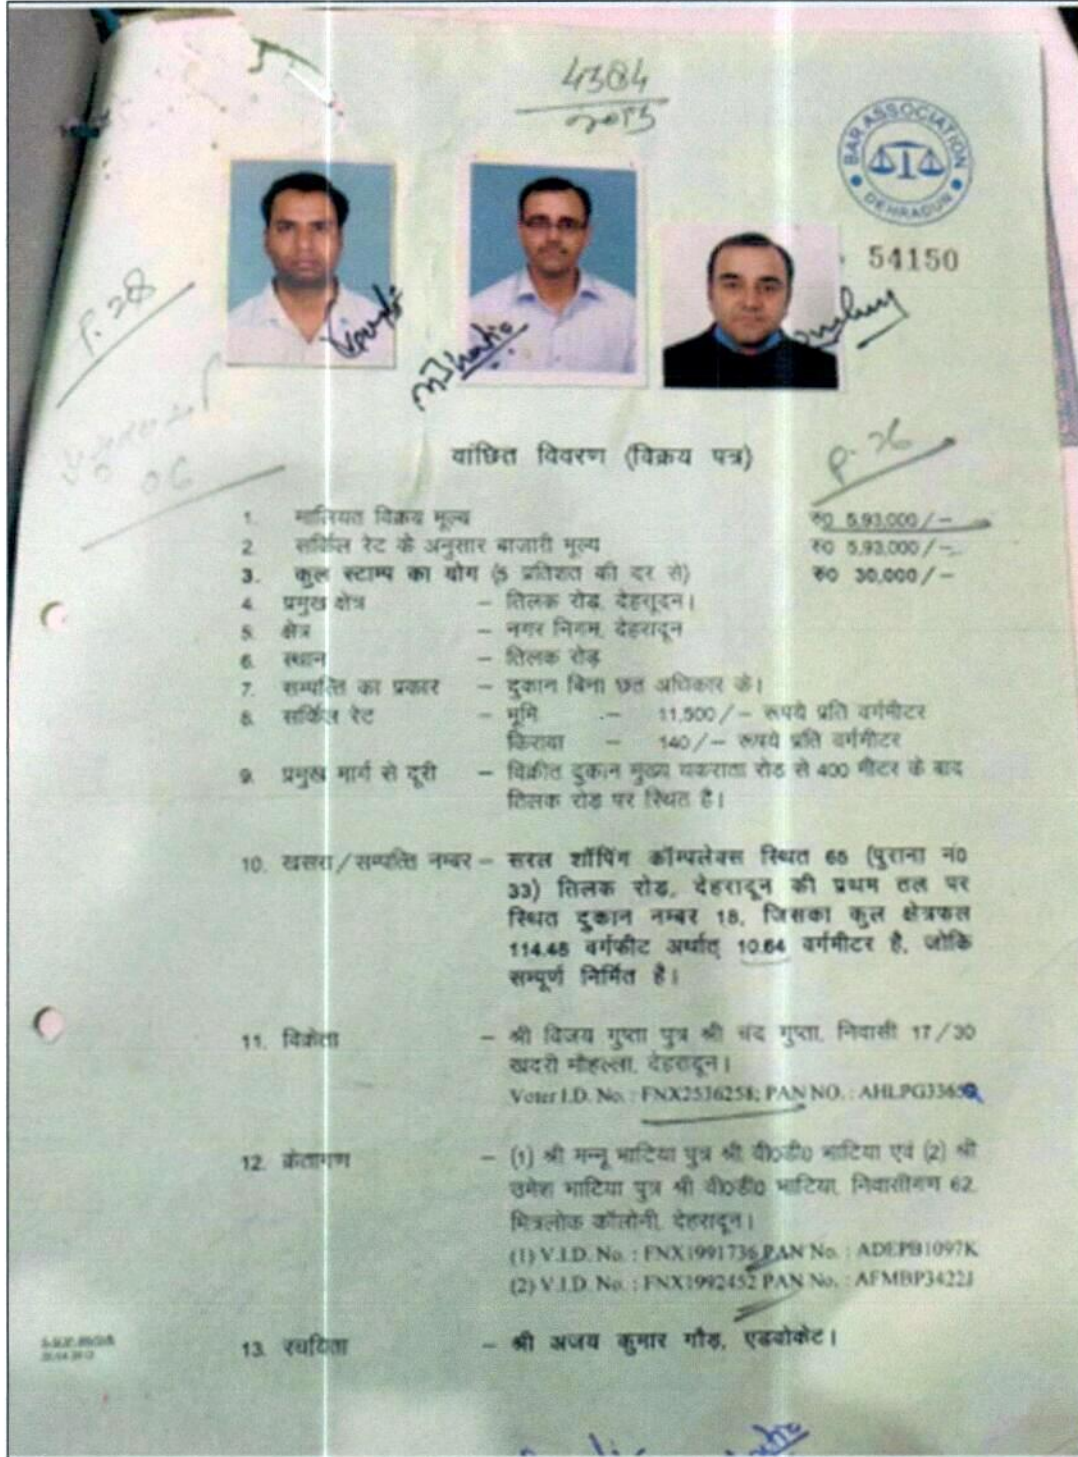 4384
2013
BAR ASSOCIATION
DEHRADUN
54150
P. 28
P. 26
06
वांछित विवरण (विक्रय पत्र)
1. मालियत विक्रय मूल्य रू0 5,93,000/-
2. सर्किल रेट के अनुसार बाजारी मूल्य रू0 5,93,000/-
3. कुल स्टाम्प का योग (5 प्रतिशत की दर से) रू0 30,000/-
4. प्रमुख क्षेत्र – तिलक रोड, देहरादून।
5. क्षेत्र – नगर निगम, देहरादून
6. स्थान – तिलक रोड़
7. सम्पत्ति का प्रकार – दुकान बिना छत अधिकार के।
8. सर्किल रेट – भूमि – 11,500/- रूपये प्रति वर्गमीटर
किराया – 140/- रूपये प्रति वर्गमीटर
9. प्रमुख मार्ग से दूरी – विक्रीत दुकान मुख्य चकराता रोड से 400 मीटर के बाद
तिलक रोड पर स्थित है।
10. खसरा/सम्पत्ति नम्बर – सरल शॉपिंग कॉम्पलेक्स स्थित 65 (पुराना नं0
33) तिलक रोड, देहरादून की प्रथम तल पर
स्थित दुकान नम्बर 18, जिसका कुल क्षेत्रफल
114.48 वर्गफीट अर्थात् 10.64 वर्गमीटर है, जोकि
सम्पूर्ण निर्मित है।
11. विक्रेता – श्री विजय गुप्ता पुत्र श्री चंद गुप्ता, निवासी 17/30
खदरी मौहल्ला, देहरादून।
Voter I.D. No. : FNX2536258; PAN NO. :
12. क्रेतागण – (1) श्री मन्नू भाटिया पुत्र श्री वी0डी0 भाटिया एवं (2) श्री
उमेश भाटिया पुत्र श्री वी0डी0 भाटिया, निवासीगण 62,
मित्रलोक कॉलोनी, देहरादून।
(1) V.I.D. No. : FNX1991736 PAN No. : ADEPB1097K
(2) V.I.D. No. : FNX1992452 PAN No. : AFMBP3422J
13. रचयिता – श्री अजय कुमार गौड़, एडवोकेट।